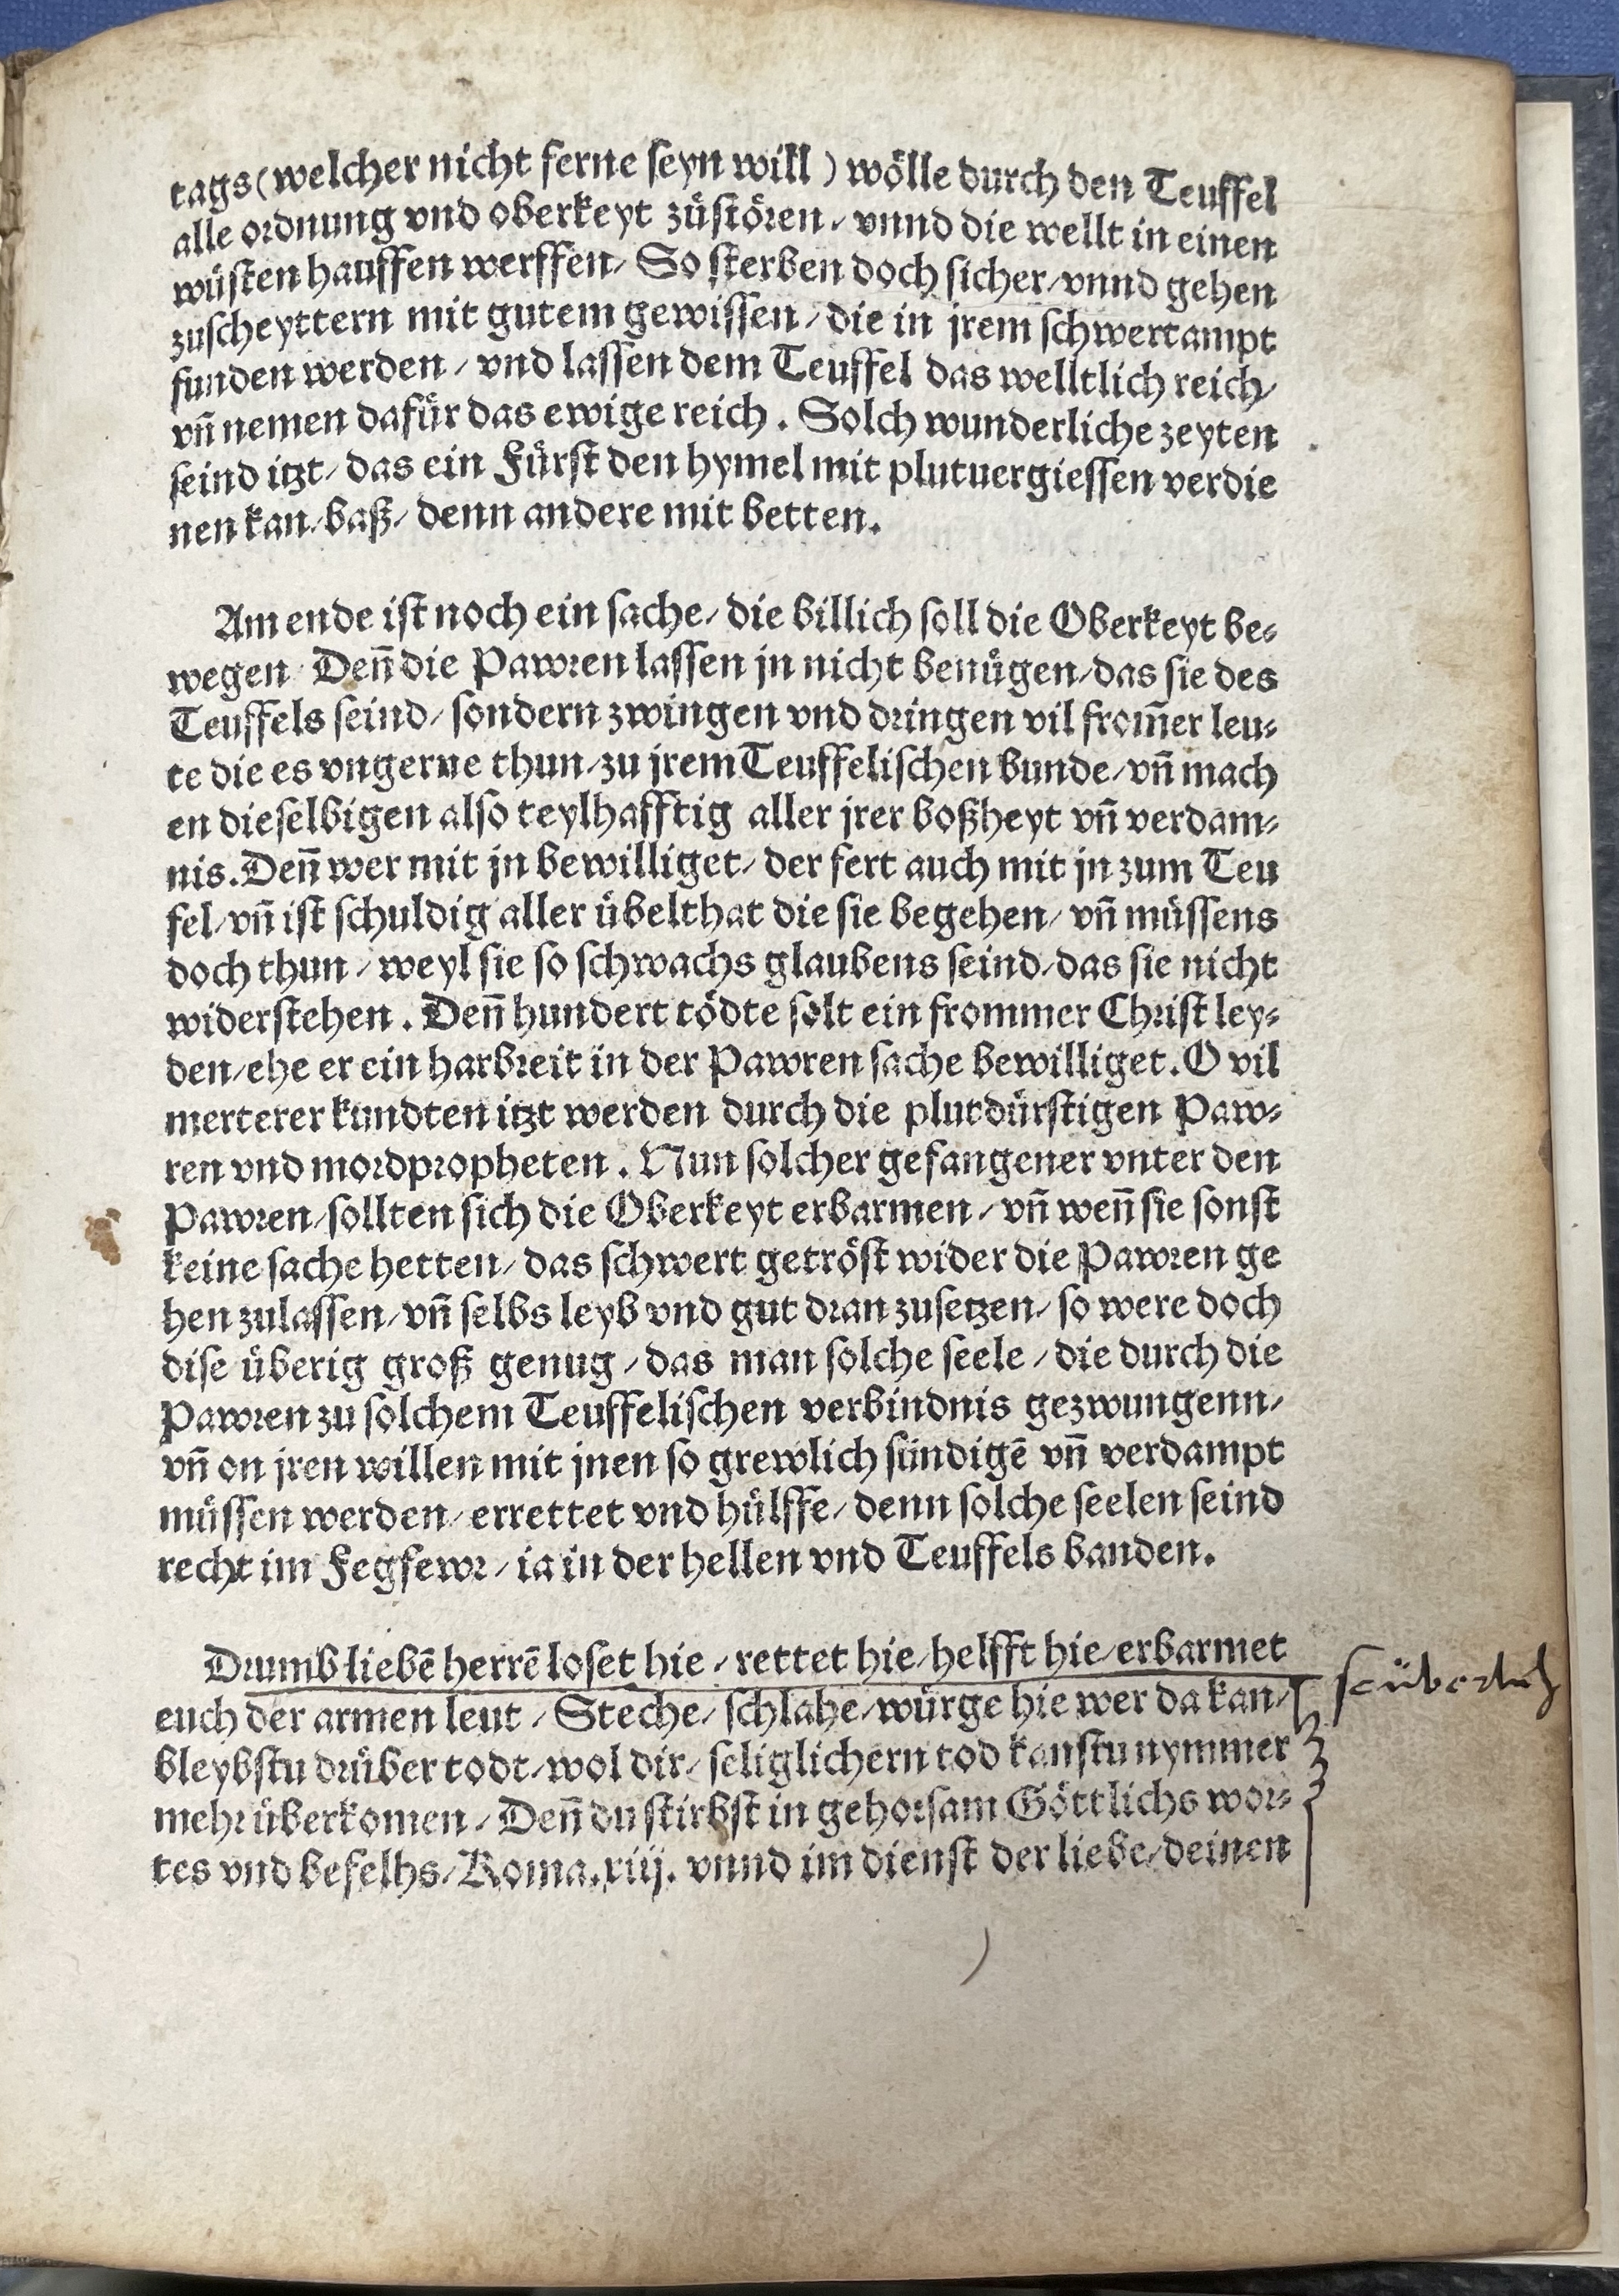 tags (welcher nicht ferne seyn will) wölle durch den Teuffel
alle ordnung vnd oberkeyt zůstören / vnnd die wellt in einen
wüsten hauffen werffen / So sterben doch sicher / vnnd gehen
zuscheyttern mit gutem gewissen / die in jrem schwertampt
funden werden / vnd lassen dem Teuffel das welltlich reich /
vñ nemen dafür das ewige reich. Solch wunderliche zeyten
seind itzt / das ein Fürst den hymel mit plutuergiessen verdie
nen kan / baß / denn andere mit betten.
Am ende ist noch ein sache / die billich soll die Oberkeyt be-
wegen Deñ die Pawren lassen jn nicht benügen / das sie des
Teuffels seind / sondern zwingen vnd dringen vil from̃er leu-
te die es vngerne thun / zu jrem Teuffelischen bunde / vñ mach
en dieselbigen also teylhafftig aller jrer boßheyt vñ verdam-
nis. Deñ wer mit jn bewilliget / der fert auch mit jn zum Teu
fel / vñ ist schuldig aller übelthat die sie begehen / vñ müssens
doch thun / weyl sie so schwachs glaubens seind / das sie nicht
widerstehen. Deñ hundert tödte solt ein frommer Christ ley-
den / ehe er ein harbreit in der Pawren sache bewilliget. O vil
merterer kundten itzt werden durch die plutdürstigen Paw-
ren vnd mordpropheten. Nun solcher gefangener vnter den
Pawren / sollten sich die Oberkeyt erbarmen / vñ weñ sie sonst
keine sache hetten / das schwert getröst wider die Pawren ge
hen zulassen / vñ selbs leyb vnd gut dran zusetzen / so were doch
dise überig groß genug / das man solche seele / die durch die
Pawren zu solchem Teuffelischen verbindnis gezwungenn /
vñ on jren willen mit jnen so grewlich sündigē vñ verdampt
müssen werden / errettet vnd hülffe / denn solche seelen seind
recht im Fegfewr / ia in der hellen vnd Teuffels banden.
Drumb liebē herrē loset hie / rettet hie / helfft hie / erbarmet
euch der armen leut / Steche / schlahe / würge hie wer da kan /
bleybstu drüber todt / wol dir / seliglichern tod kanstu nymmer
mehr überkomen / Deñ du stirbst in gehorsam Göttlichs wor-
tes vnd befelhs / Roma. xiij. vnnd im dienst der liebe / deinen